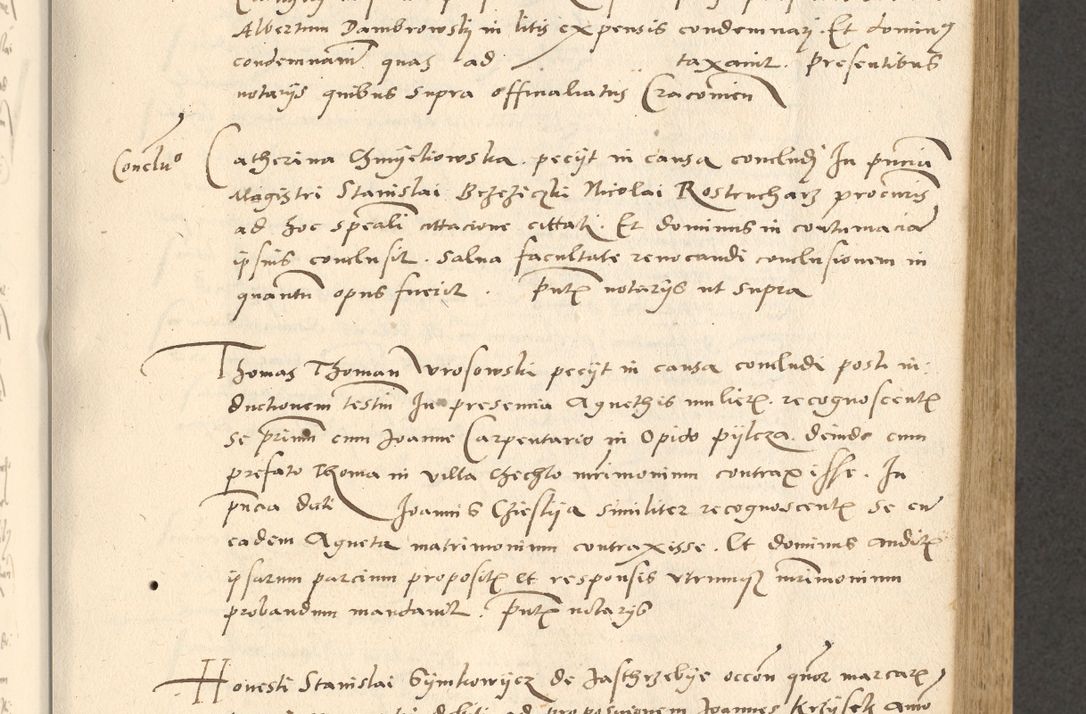 Albertum Dambrowskj in litis expensis condemnarj. Et dominus
condemnavit quas ad taxavit. Presentibus
notarijs quibus supra officialiatus Cracovien
Conclu^o
Catherina Chmyeliowska. pecijt in causa concludj In pncia
Magistri Stanislai Brzeziczki Nicolai Rostrucharz procuris
ad hoc speali cittacione cittati. Et dominus in contumacia
ipsius conclusit. salva facultate revocandi conclusionem in
quantu opus fuerit. Pntz notarijs ut supra
Thomas Thoman Wrosowski pecijt in causa concludi post in
ductionem testiu In presencia Agnethis mulierz. recognoscentz
se primu cum Joanne Carpentario in Opido Pijlcza. deinde cum
prefato Thoma in villa Chechlo mrimonium contraxisse. In
pncia dicti Joannis Chieslija similiter recognoscentz se cu
eadem Agneta matrimonium contraxisse. Et dominus auditz
ipsarum parcium propositz et responsis utrumqz mrimonium
probandum mandavit. Pntz notarijs
Honesti Stanislai Symkowijcz de Jastrzebije occon quor marcarz
ad proposicionem Joannes Krzijsek